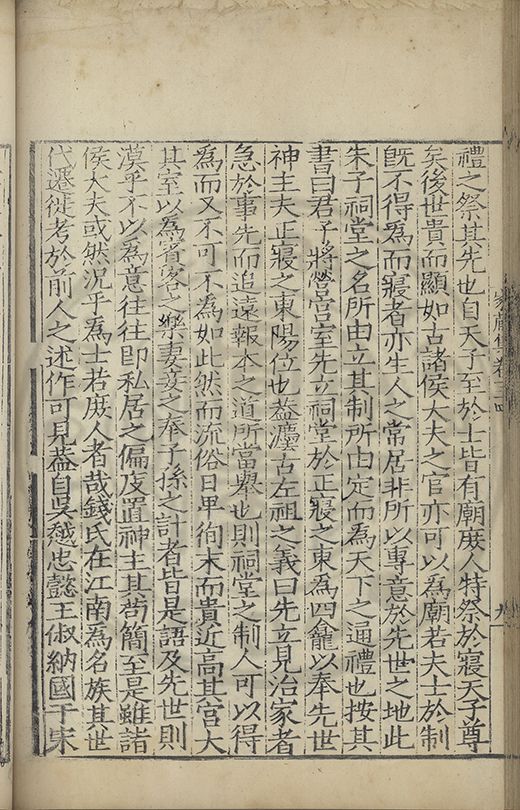 禮之祭其先也自天子至於士皆有廟庻人特祭於寢天子尊
矣後世貴而顯如古諸侯大夫之官亦可以爲廟若夫士於制
旣不得爲而寢者亦生人之常居非所以專意於先世之地此
朱子祠堂之名所由立其制所由定而爲天下之通禮也按其
書曰君子將營宮室先立祠堂於正寢之東爲四龕以奉先世
神主夫正寢之東陽位也葢古左祖之義曰先立見治家者
急於事先而追遠報本之道所當舉也則祠堂之制人可以得
爲而又不可不爲如此然而流俗日卑徇末而貴近高其宮大
其室以爲賓客之樂妻妾之奉子孫之計者皆是語及先世則
漠乎不以爲意往往即私居之偏及置神主其茍簡至是雖諸
侯大夫或然況乎爲士若庻人者哉錢氏在江南爲名族其世
代遷徙考於前人之述作可見葢自吳越忠懿王俶納國于宋
家藏集卷三四
九